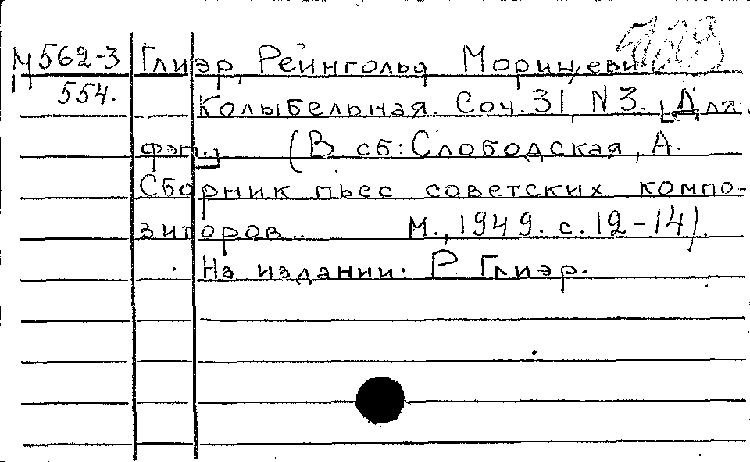 М 562-3 Глиэр, Рейнгольд Морицеви
554. Колыбельная. Соч. 31, N 3. [Для
фэп.] (В сб: Слободская, А.
Сборник пьес советских компо-
зиторов. М., 1949. с. 12-14).
На издании: Р Глиэр.